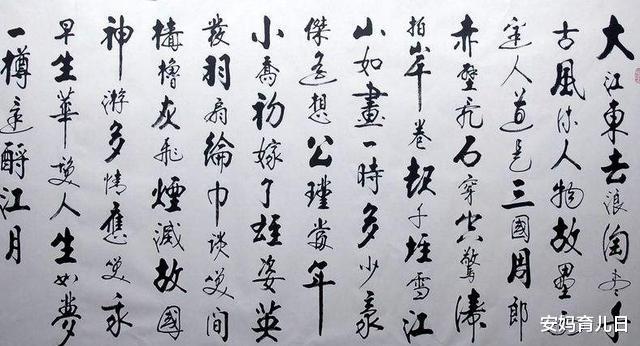 大江東去浪淘盡千
古風流人物故壘西
邊人道是三國周郎
赤壁亂石穿空驚濤
拍岸卷起千堆雪江
山如畫一時多少豪
傑遙想公瑾當年
小喬初嫁了雄姿英
發羽扇綸巾談笑間
檣櫓灰飛煙滅故國
神游多情應笑我
早生華髮人生如夢
一樽還酹江月
安妈育儿日